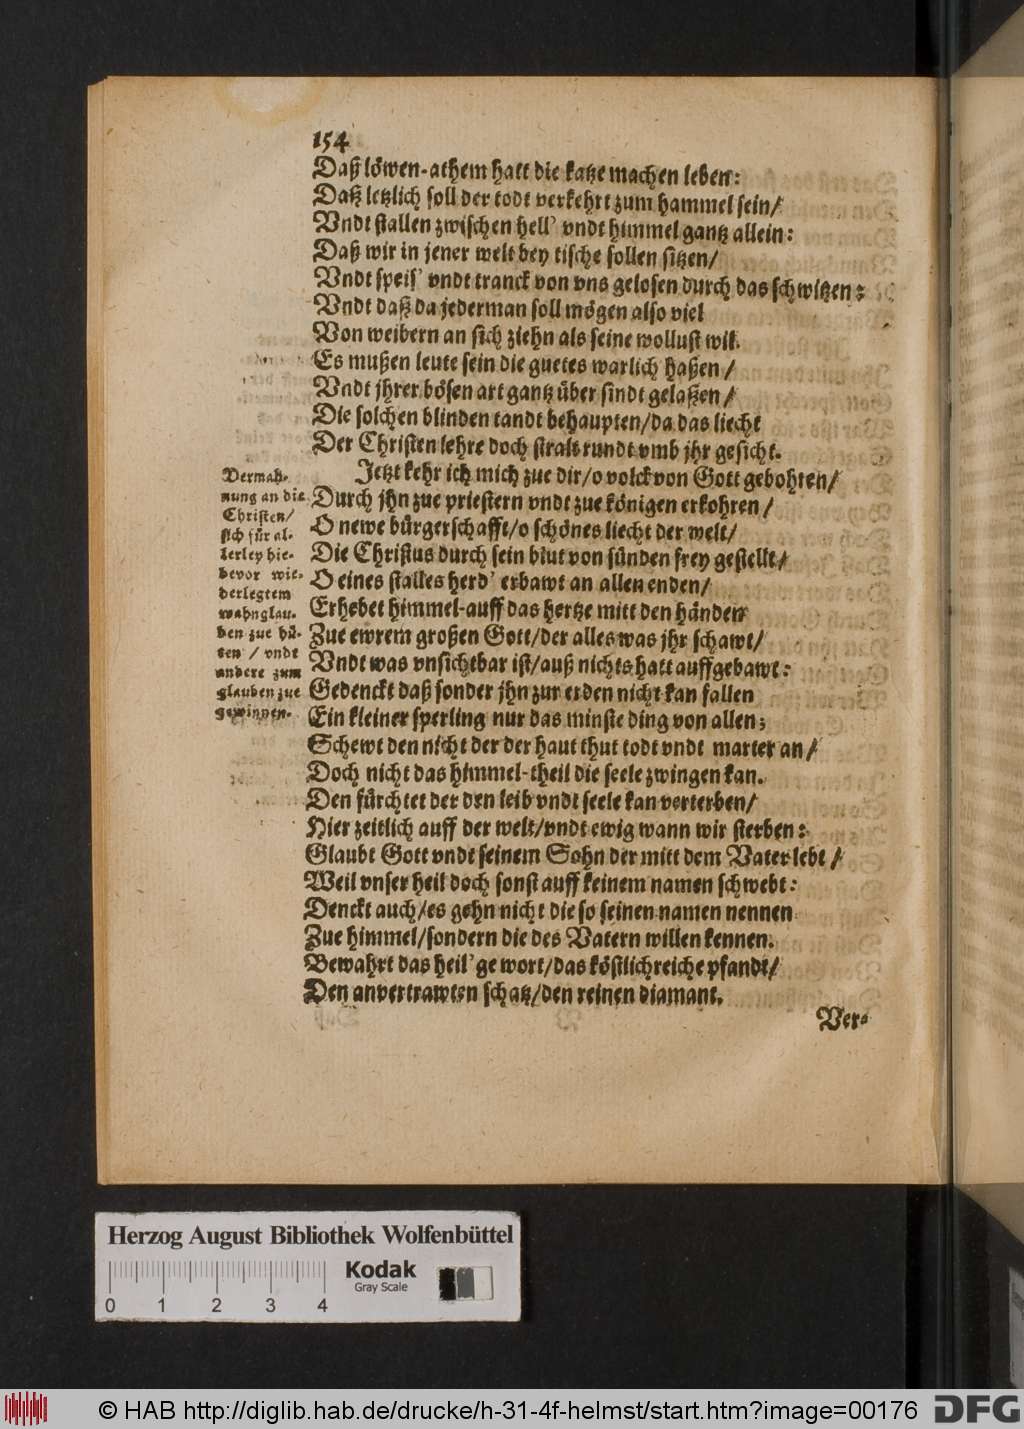 154
Daß löwen-athem hatt die katze machen leben:
Daß letzlich soll der todt verkehrt zum hammel sein/
Vndt stallen zwischen hell' vndt himmel gantz allein:
Daß wir in jener welt bey tische sollen sitzen/
Vndt speis' vndt tranck von vns gelosen durch das schwitzen:
Vndt daß da jederman soll mögen also viel
Von weibern an sich ziehn als seine wollust wil.
Es mußen leute sein die guetes warlich haßen/
Vndt jhrer bösen art gantz über sindt gelaßen/
Die solchen blinden tandt behaupten/da das liecht
Der Christen lehre doch stralt rundt vmb jhr gesicht.
Jetzt kehr ich mich zue dir/o volck von Gott gebohren/
Durch jhn zue priestern vndt zue königen erkohren/
O newe bürgerschafft/o schönes liecht der welt/
Die Christus durch sein blut von sünden frey gestellt/
O eines stalles herd' erbawt an allen enden/
Erhebet himmel-auff das hertze mitt den händen
Zue ewrem großen Gott/der alles was jhr schawt/
Vndt was vnsichtbar ist/auß nichts hatt auffgebawt:
Gedenckt daß sonder jhn zur erden nicht kan fallen
Ein kleiner sperling nur das minste ding von allen;
Schewt den nicht der der haut thut todt vndt marter an/
Doch nicht das himmel-theil die seele zwingen kan.
Den fürchtet der den leib vndt seele kan verterben/
Hier zeitlich auff der welt/vndt ewig wann wir sterben:
Glaubt Gott vndt seinem Sohn der mitt dem Vater lebt/
Weil vnser heil doch sonst auff keinem namen schwebt:
Denckt auch/es gehn nicht die so seinen namen nennen
Zue himmel/sondern die des Vatern willen kennen.
Bewahrt das heil'ge wort/das köstlichreiche pfandt/
Den anvertrawten schatz/den reinen diamant.
Ver-
Vermah-
nung an die
Christen/
sich für al-
lerley hie-
bevor wie-
derlegtem
wahnglau-
ben zue hü-
ten/vndt
andere zum
glauben zue
gewinnen.
Herzog August Bibliothek Wolfenbüttel
Kodak
Gray Scale
0 1 2 3 4
© HAB http://diglib.hab.de/drucke/h-31-4f-helmst/start.htm?image=00176
DFG